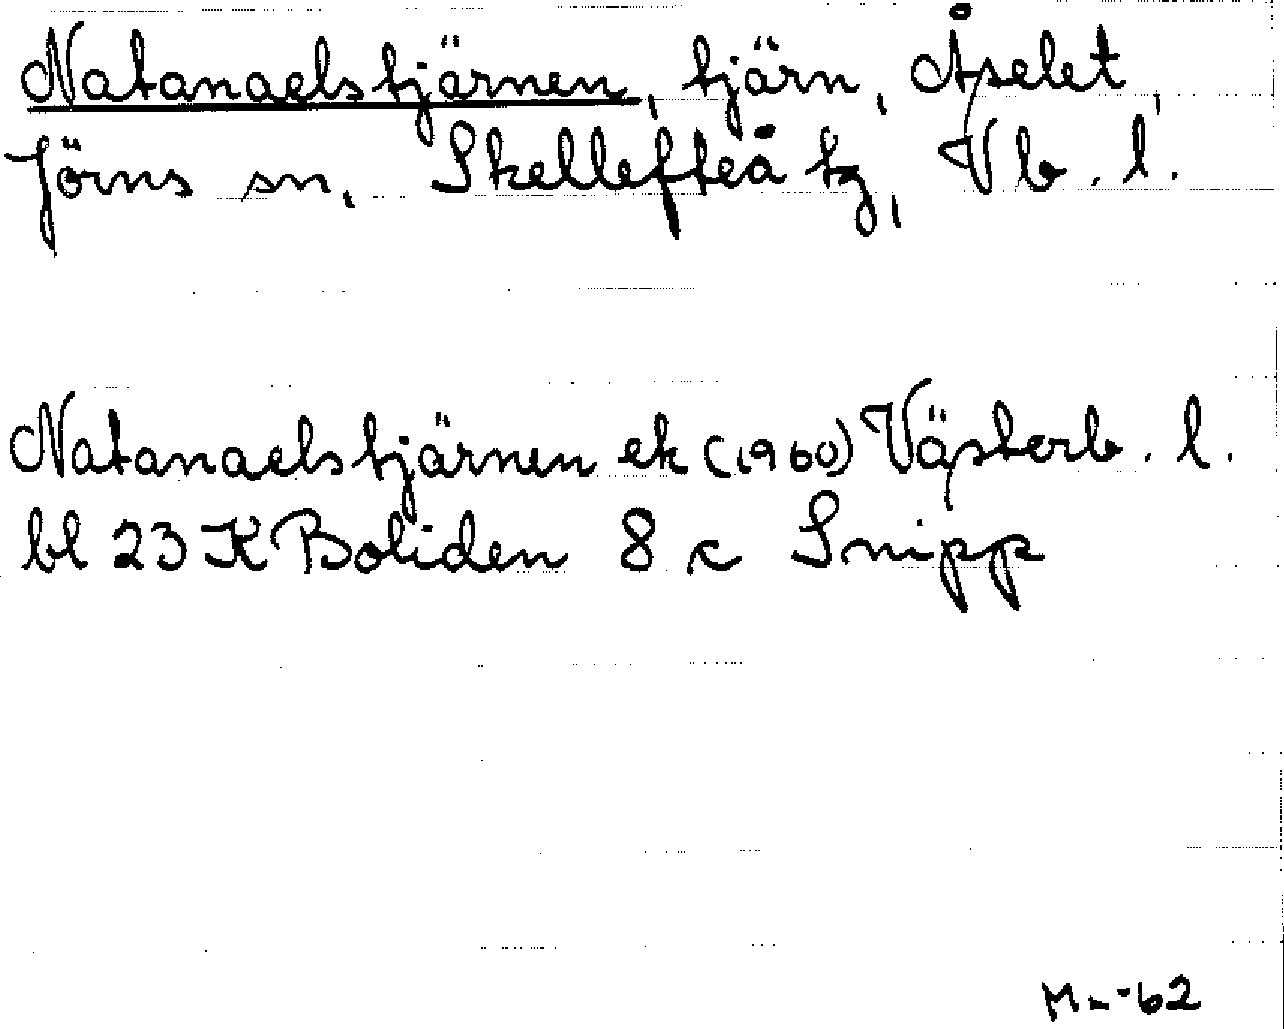 Natanaelstjärnen, tjärn, Åselet,
Jörns sn, Skellefteå tg, Vb. l.
Natanaelstjärnen ek (1960) Västerb. l.
bl 23 K Boliden 8 c Snipp
-62